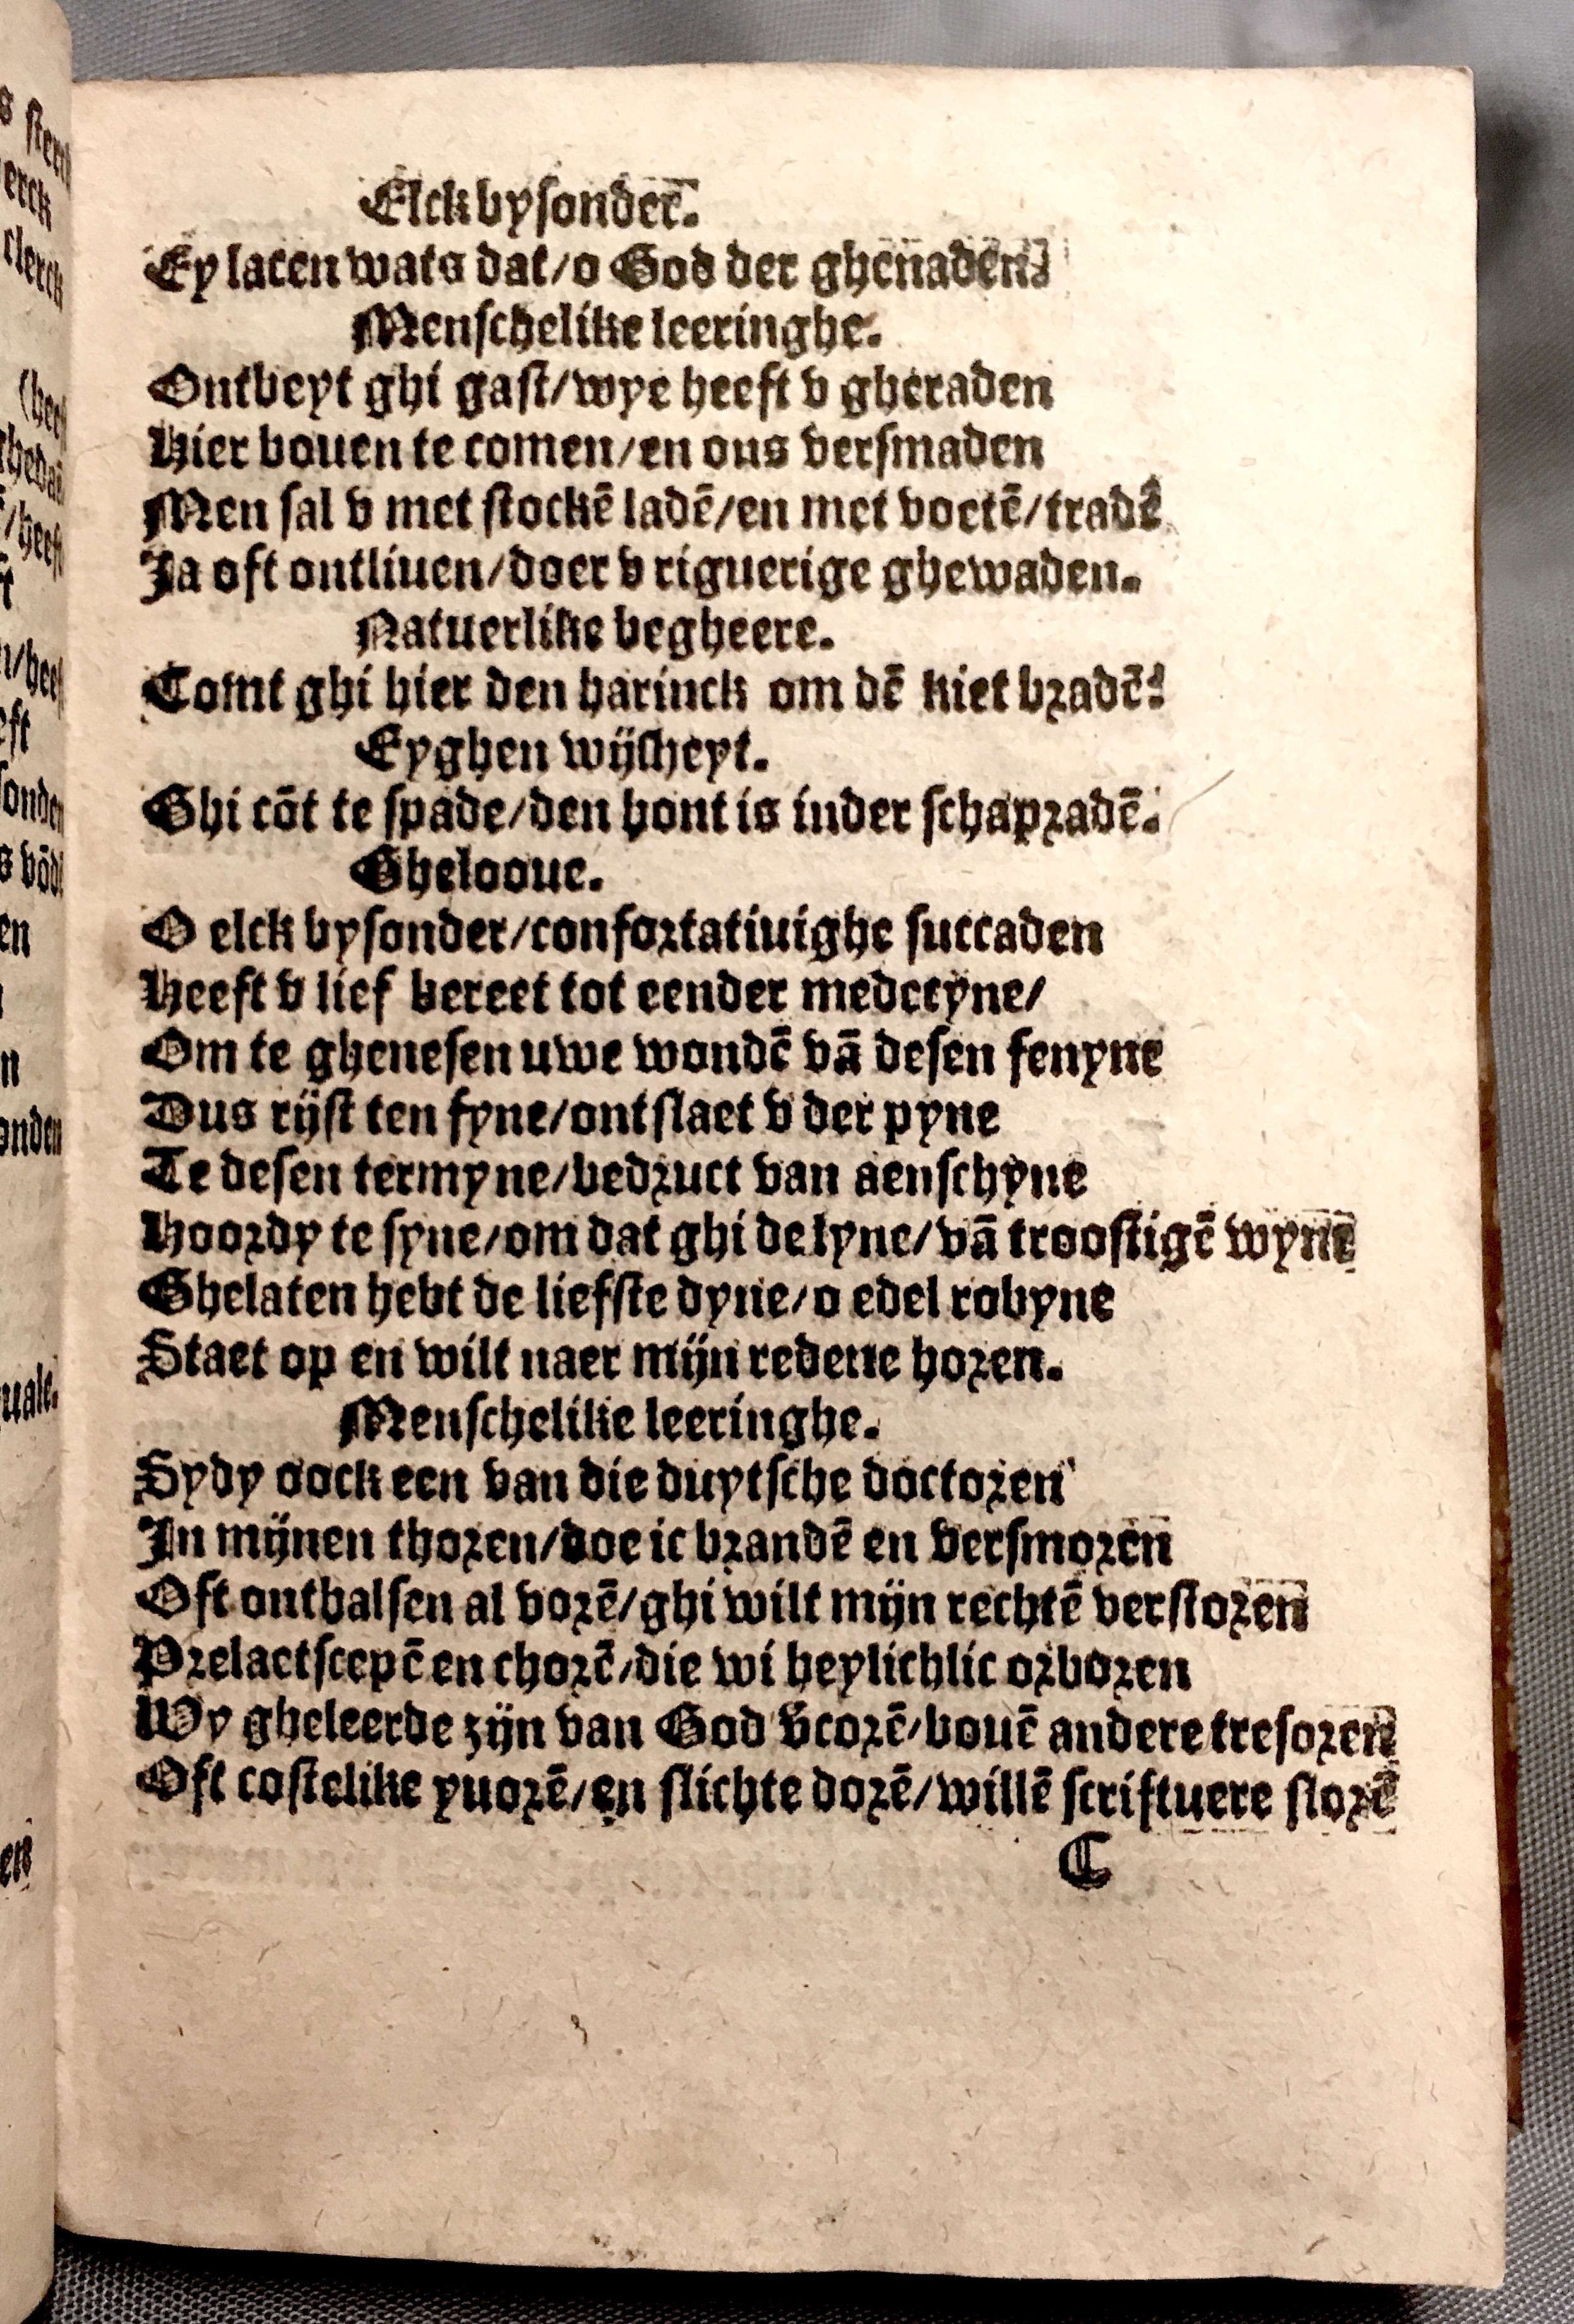 Elck bysonder.
Ey lacen wats dat/o God der ghenaden.
Menschelike leeringhe.
Ontbeyt ghi gast/wye heeft v gheraden
Hier bouen te comen/en ons versmaden
Men sal v met stockē ladē/en met voetē/tradē
Ja oft ontliuen/doer v riguerige ghewaden.
Natuerlike begheere.
Comt ghi hier den harinck om dē kiet bradē?
Eyghen wijsheyt.
Ghi cōt te spade/den hont is inder schapradē.
Ghelooue.
O elck bysonder/confortatiuighe succaden
Heeft v lief bereet tot eender medecyne/
Om te ghenesen uwe wondē vā desen fenyne
Dus rijst ten fyne/ontslaet v der pyne
Te desen termyne/bedruct van aenschyne
Hoordy te syne/om dat ghi de lyne/vā troostigē wyne
Ghelaten hebt de liefste dyne/o edel robyne
Staet op en wilt naer mijn redene horen.
Menschelike leeringhe.
Sydy oock een van die duytsche doctoren
In mijnen thoren/doe ic brandē en versmoren
Oft onthalsen al vorē/ghi wilt mijn rechtē verstoren
Prelaetscepē en chorē/die wi heylichlic orboren
Wy gheleerde zijn van God v̄corē/bouē andere tresoren
Oft costelike yuorē/en slichte dorē/willē scriftuere slorē
C
(hee
erck
clerck
en
n
onden